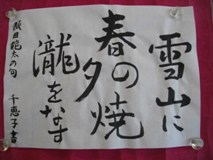 雪山に
春の夕焼
瀧をなす
飯田龍太の句 千恵子書